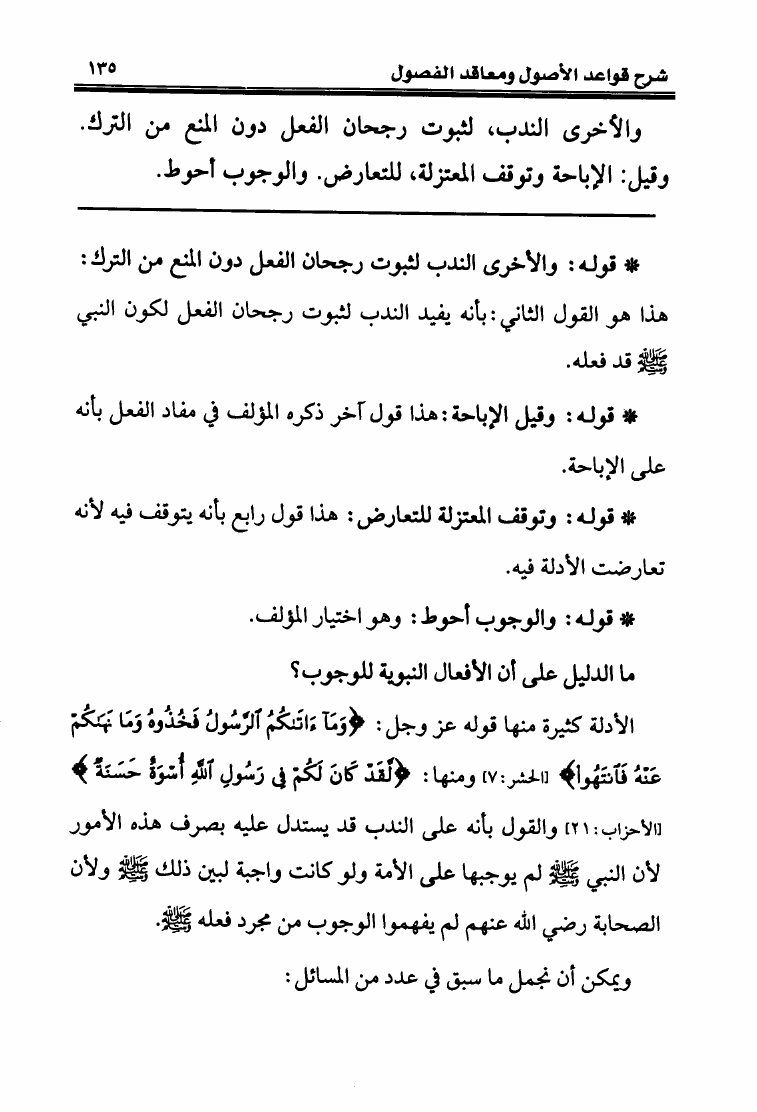 شرح قواعد الأصول ومعاقد الفصول ١٣٥
والأخرى الندب، لثبوت رجحان الفعل دون المنع من الترك.
وقيل: الإباحة وتوقف المعتزلة، للتعارض. والوجوب أحوط.
* قوله: والأخرى الندب لثبوت رجحان الفعل دون المنع من الترك:
هذا هو القول الثاني: بأنه يفيد الندب لثبوت رجحان الفعل لكون النبي
ﷺ قد فعله.
* قوله: وقيل الإباحة: هذا قول آخر ذكره المؤلف في مفاد الفعل بأنه
على الإباحة.
* قوله: وتوقف المعتزلة للتعارض: هذا قول رابع بأنه يتوقف فيه لأنه
تعارضت الأدلة فيه.
* قوله: والوجوب أحوط: وهو اختيار المؤلف.
ما الدليل على أن الأفعال النبوية للوجوب؟
الأدلة كثيرة منها قوله عز وجل: ﴿وَمَآ ءَاتَىٰكُمُ ٱلرَّسُولُ فَخُذُوهُ وَمَا نَهَىٰكُمْ
عَنْهُ فَٱنتَهُوا۟﴾ [الحشر: ٧] ومنها: ﴿لَّقَدْ كَانَ لَكُمْ فِى رَسُولِ ٱللَّهِ أُسْوَةٌ حَسَنَةٌ﴾
[الأحزاب: ٢١] والقول بأنه على الندب قد يستدل عليه بصرف هذه الأمور
لأن النبي ﷺ لم يوجبها على الأمة ولو كانت واجبة لبين ذلك ﷺ ولأن
الصحابة رضي الله عنهم لم يفهموا الوجوب من مجرد فعله ﷺ.
ويمكن أن نجمل ما سبق في عدد من المسائل: